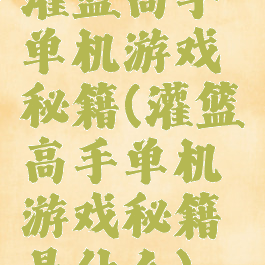 灌篮高手
单机游戏
秘籍(灌篮
高手单机
游戏秘籍
是什么)